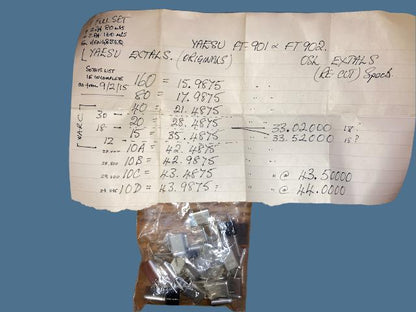 FULL SET
YAESU FT-901 & FT 902.
[YAESU EXTALS. (ORIGINALS) OSL EXTALS
(RE CUT) Spook.
SETS LIST
IS INCOMPLETE
as from 9/2/15
160 = 15.9875
80 = 17.9875
40 = 21.4875
30
20 = 28.4875 33.02000 18"
18
15 = 35.4875 33.52000 15?
12
10A = 42.4875
10B = 42.9875
10C = 43.4875 " @ 43.50000
10D = 43.9875 " @ 44.0000
WARC